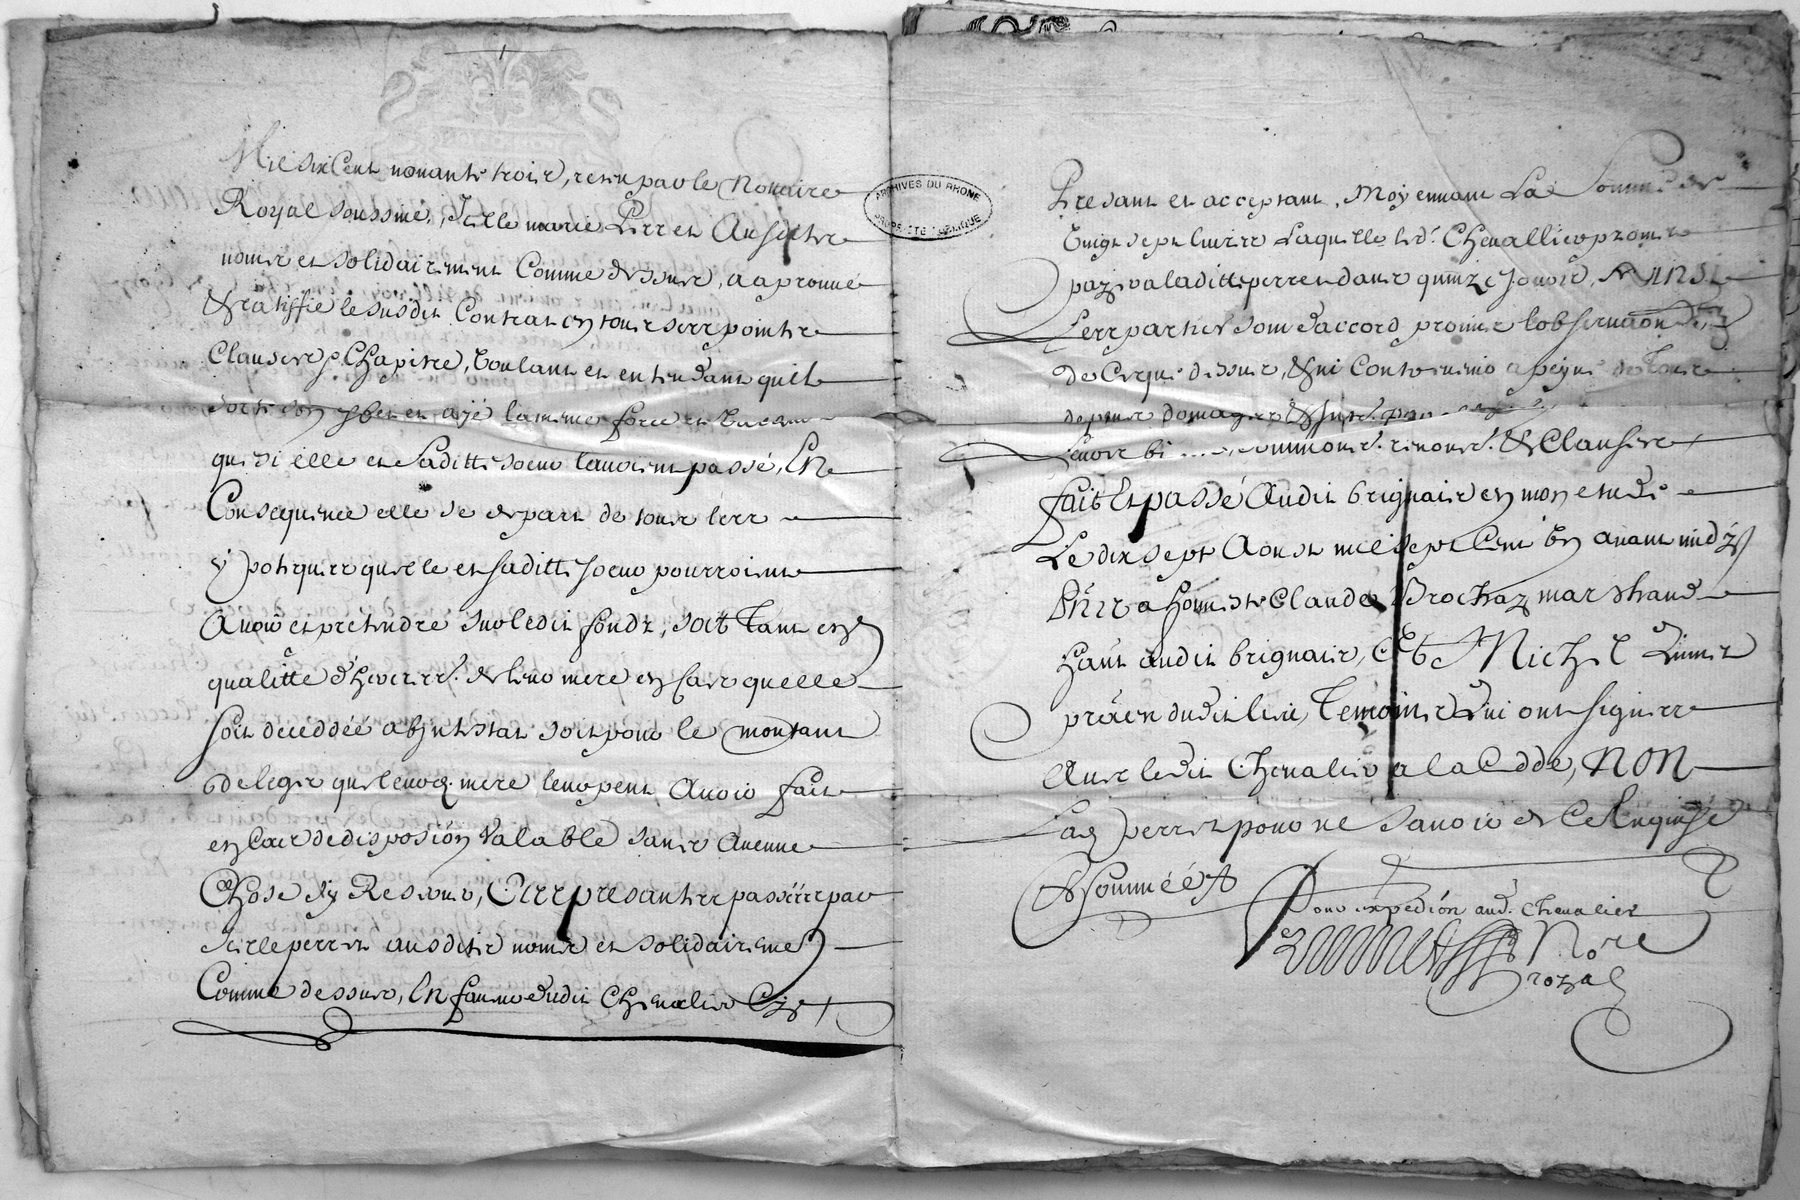 Mil six Cent nonante trois, receu par le Notaire
Royal soussiné, Icelle marie Perret Ausdits
noms et solidairement Comme dessus, a aprouvé
& ratiffié le susdit Contrat en tous ses points
Clauses & Chapitre, Voulant et entendant quil
sorte son effet et ayé la meme force et
que si elle et saditte soeur lavoient passé, En
Consequence elle se depart de tous les
ypoteques quelle et saditte soeur pourroient
Avoir et pretendre sur ledit fondz, soit Tant en
qualitté d'heritiers de leur mere en cas quelle
soit deceddée abintestat soit pour le montant
de legs que leur mere leur peut Avoir fait
en Cas de disposion Valable sans Aucune
Chose sy Reserver, Ces presantes passées par
icelle perret ausdits noms et solidairemen
Comme dessus, En faveur dudit Chevalier Cy
ARCHIVES DU RHONE
PROPRIETE PUBLIQUE
Presant et acceptant, Moyennant La Somme de
Vingt sept livres Laquelle led. Chevallier promet
payer a laditte perret dans quinze Jours, & AINSI
Les parties sont d'accord promis lobservaon
de Ce que dessus, & ny Contrevenir a peyne de Tous
depens domages &
Leurs bi... soummons. renons. & Clauses
fait Et passé Audit brignais en mon etude
Le dix sept Aoust mil sept Cent un avant midy
Pnts a honneste Claude Brochay marchand
hant audit brignais, Et Michel
praen dudit lieu Temoins qui ont signés
Avec ledit Chevalier a la Cedde, NON
Lad perret pour ne Savoir de Ce Enquise
& Sommée
Pour expedion aud. Chevalier
Nore
royal